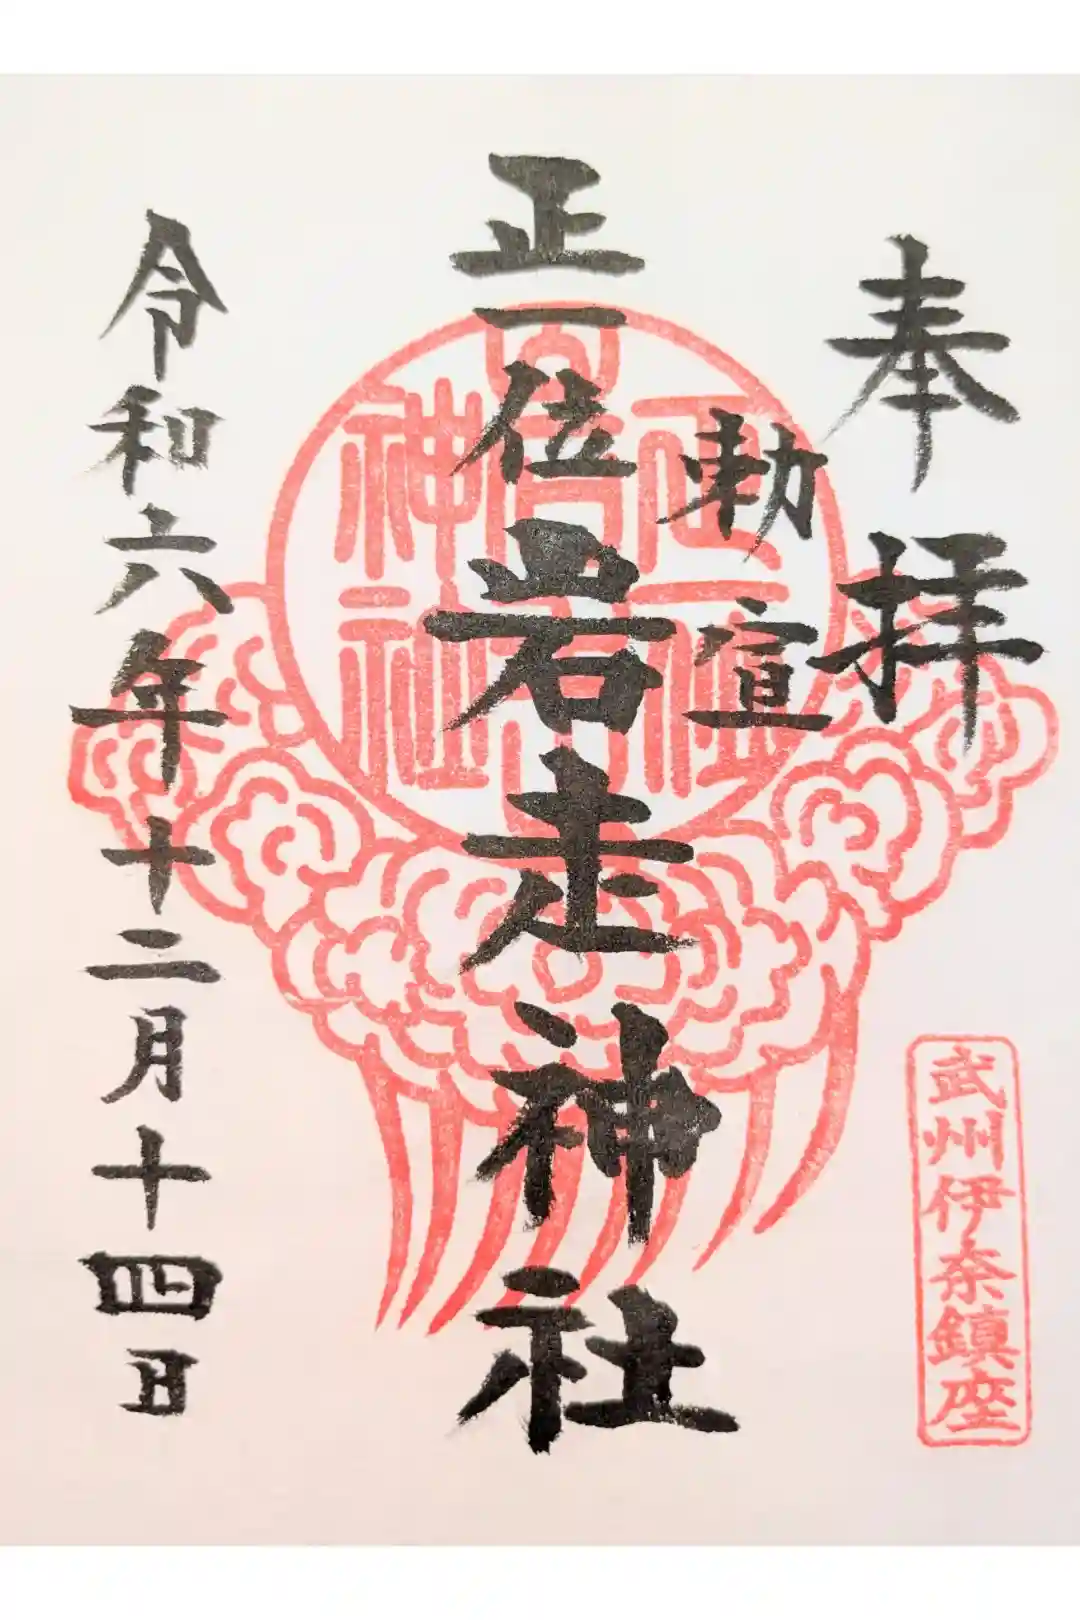 奉拝
勅宣
正一位岩走神社
令和六年十二月十四日
武州伊奈鎮座